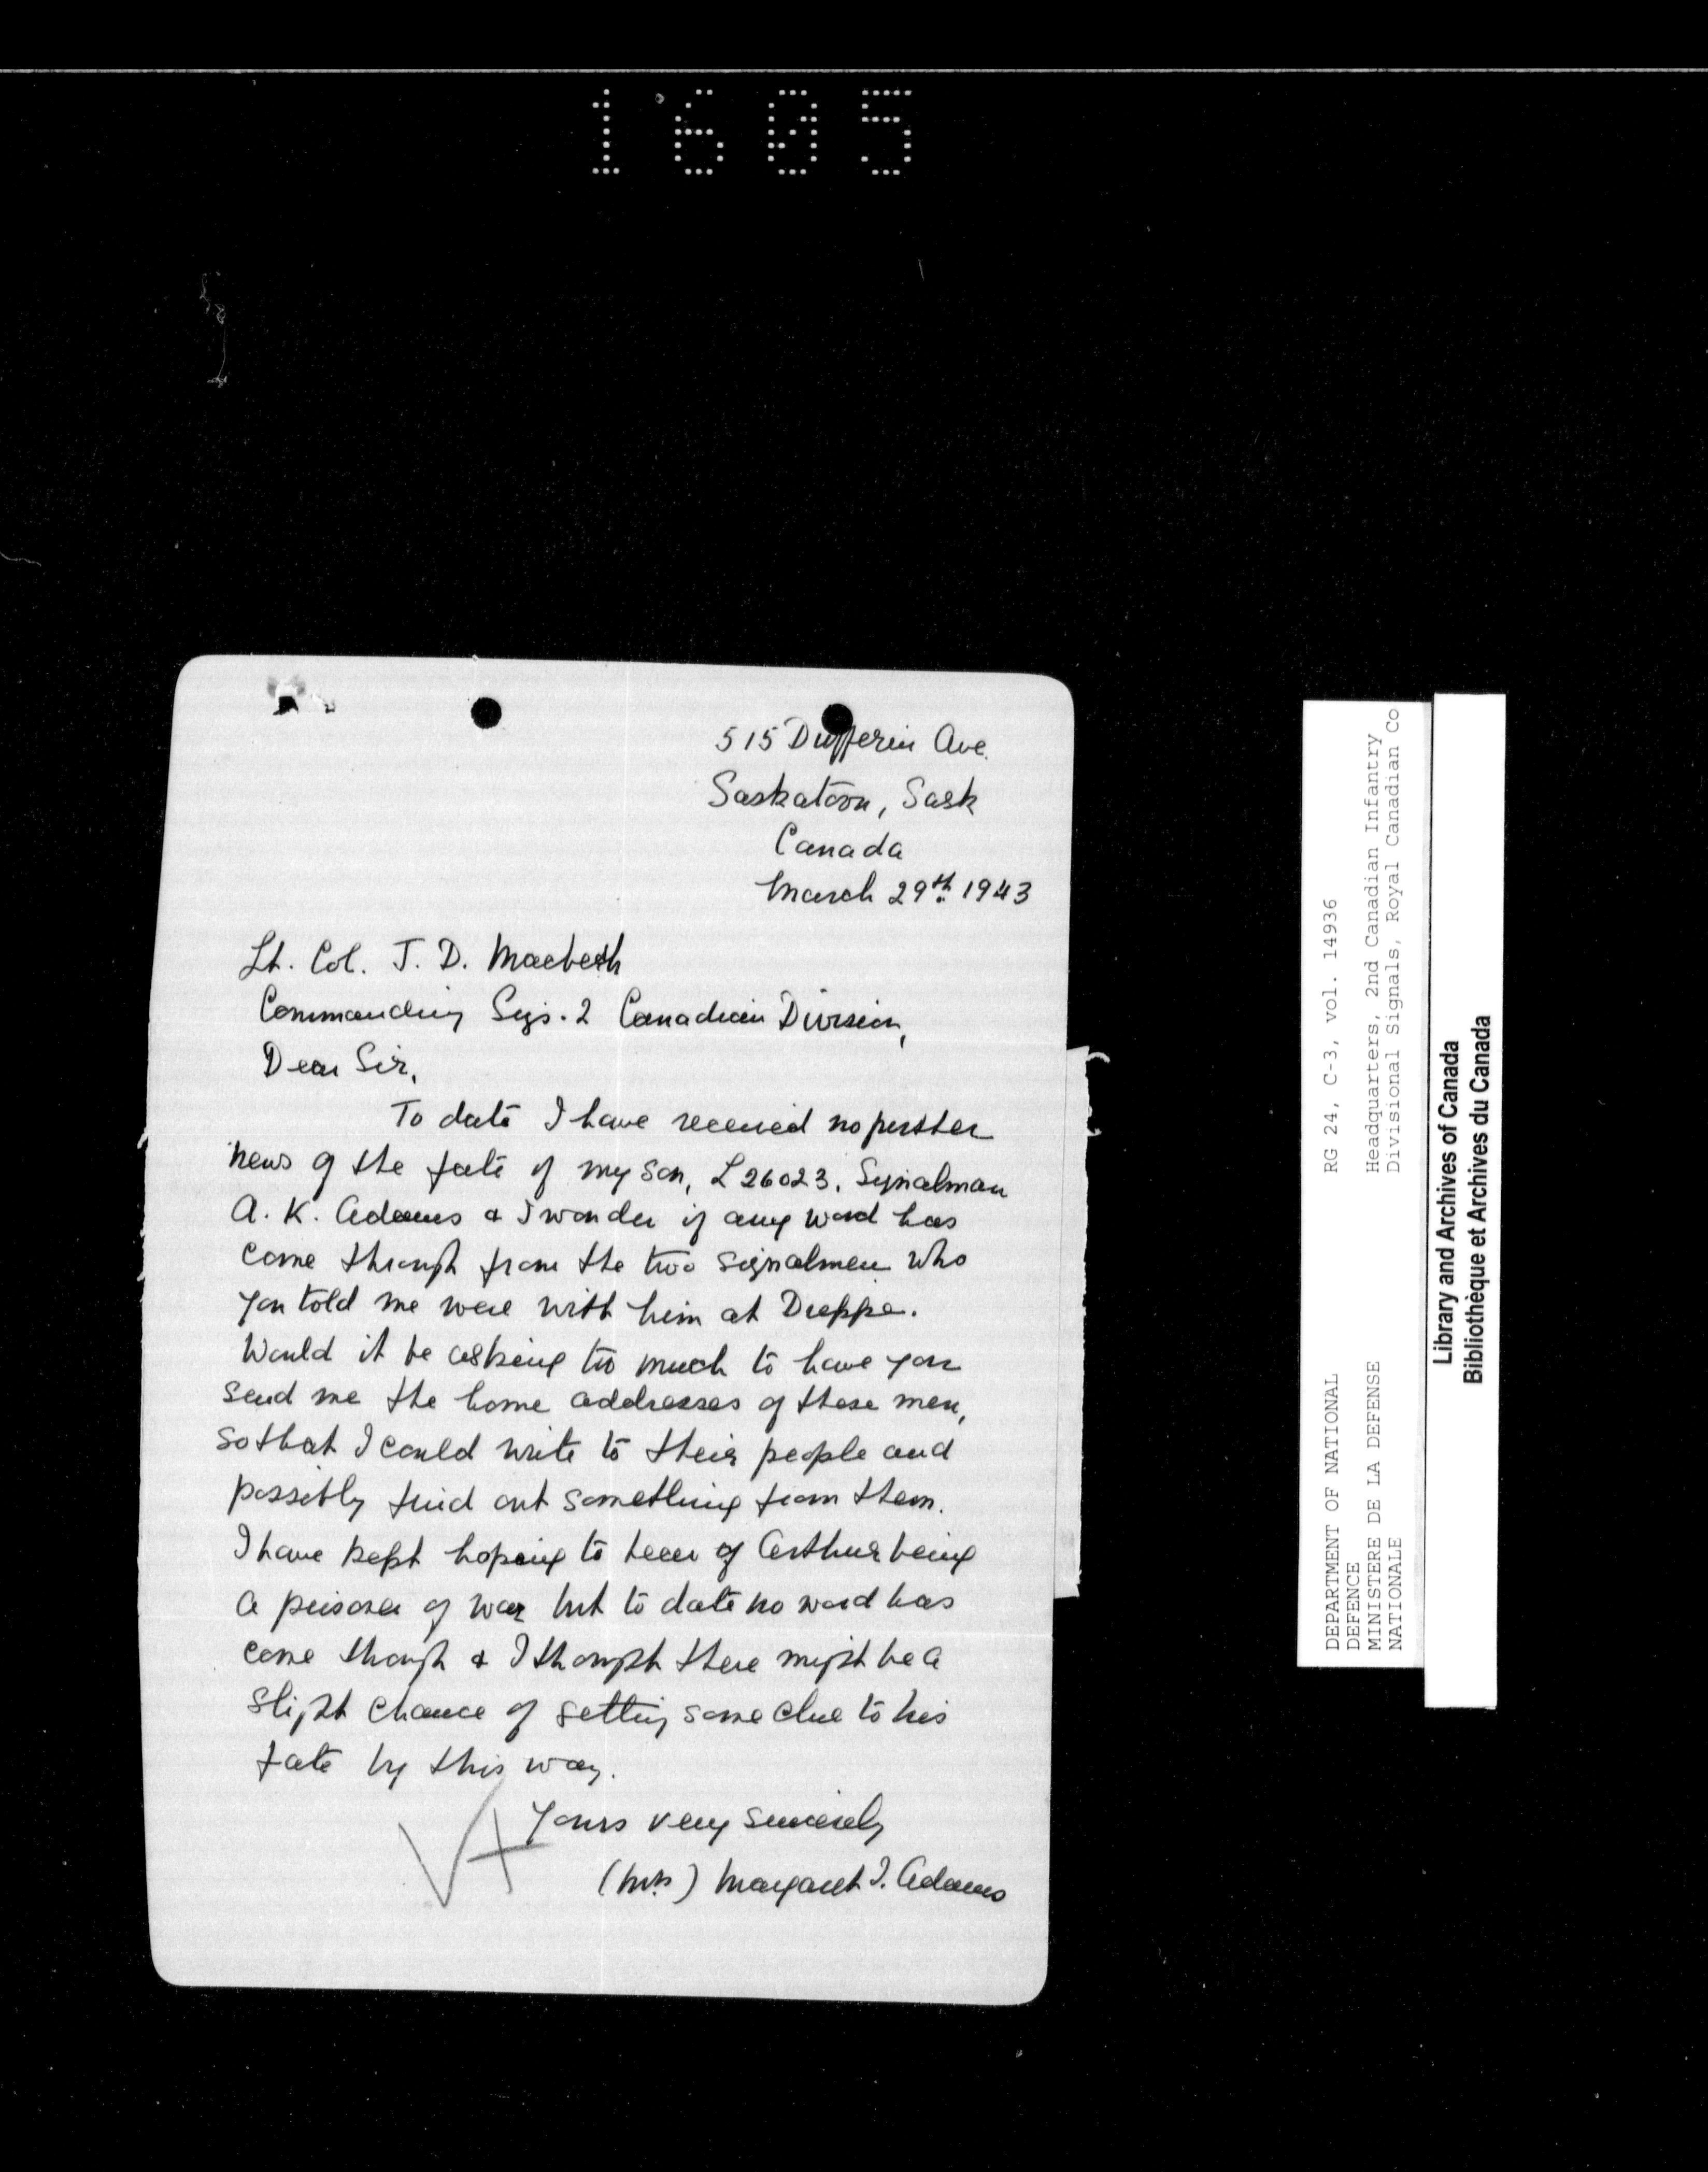 1605
515 Dufferin Ave.
Saskatoon, Sask
Canada
March 29th. 1943
Lt. Col. J. D. Macbeth
Commanding Sigs. 2 Canadian Division,
Dear Sir,
To date I have received no further
news of the fate of my son, L 26023, Signalman
A. K. Adams & I wonder if any word has
come through from the two signalmen who
you told me were with him at Dieppe.
Would it be asking too much to have you
send me the home addresses of these men,
so that I could write to their people and
possibly find out something from them.
I have kept hoping to hear of Arthur being
a prisoner of war but to date no word has
come though & I thought there might be a
slight chance of getting some clue to his
fate by this way.
Yours very sincerely
(Mrs.) Margaret I. Adams
DEPARTMENT OF NATIONAL
DEFENCE
MINISTERE DE LA DEFENSE
NATIONALE
RG 24, C-3, vol. 14936
Headquarters, 2nd Canadian Infantry
Divisional Signals, Royal Canadian Co
Library and Archives of Canada
Bibliothèque et Archives du Canada